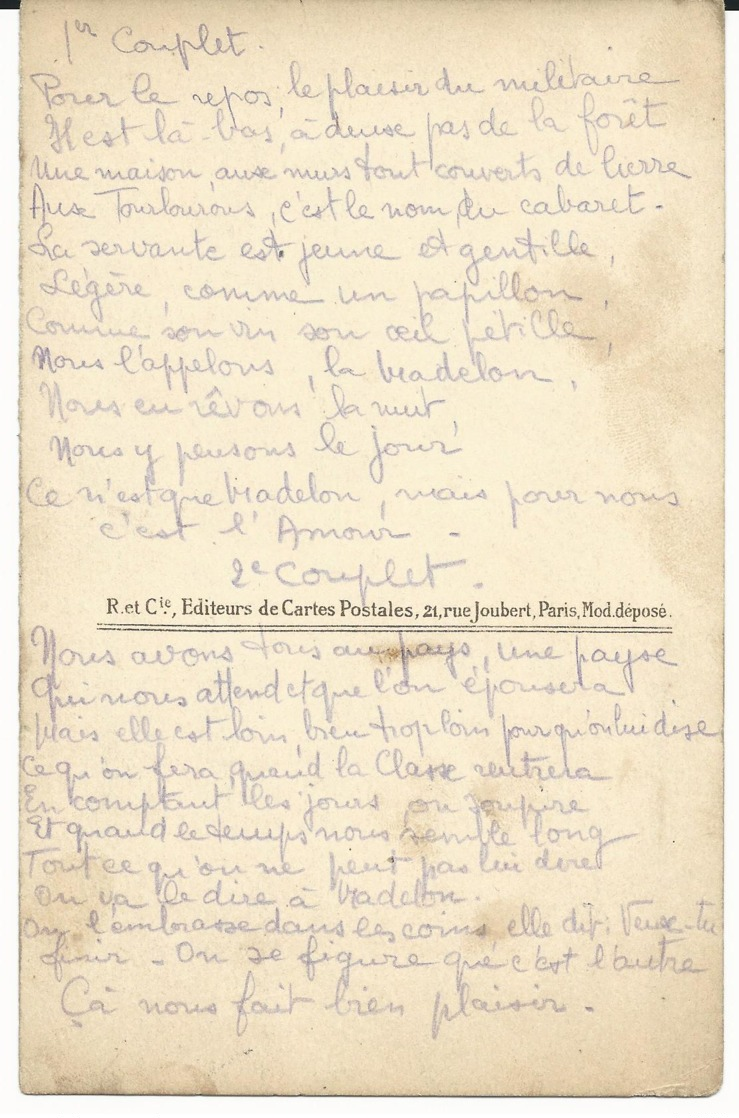 1er Couplet.
Pour le repos, le plaisir du militaire
Il est là-bas, à deux pas de la forêt
Une maison, aux murs tout couverts de lierre
Aux Tourlourous, c'est le nom du cabaret.
La servante est jeune et gentille,
Légère, comme un papillon,
Comme son vin son œil pétille,
Nous l'appelons, la Madelon,
Nous en rêvons la nuit,
Nous y pensons le jour
Ce n'est que Madelon, mais pour nous
c'est l'Amour -
2e Couplet.
R. et Cie, Editeurs de Cartes Postales, 21, rue Joubert, Paris, Mod. déposé.
Nous avons tous au pays, une payse
Qui nous attend et que l'on épousera
Mais elle est loin, bien trop loin pour qu'on lui dise
Ce qu'on fera quand la Classe rentrera
En comptant les jours on soupire
Et quand le temps nous semble long
Tout ce qu'on ne peut pas lui dire
On va le dire à Madelon.
On l'embrasse dans les coins elle dit: Veux-tu
finir - On se figure que c'est l'autre
Çà nous fait bien plaisir -